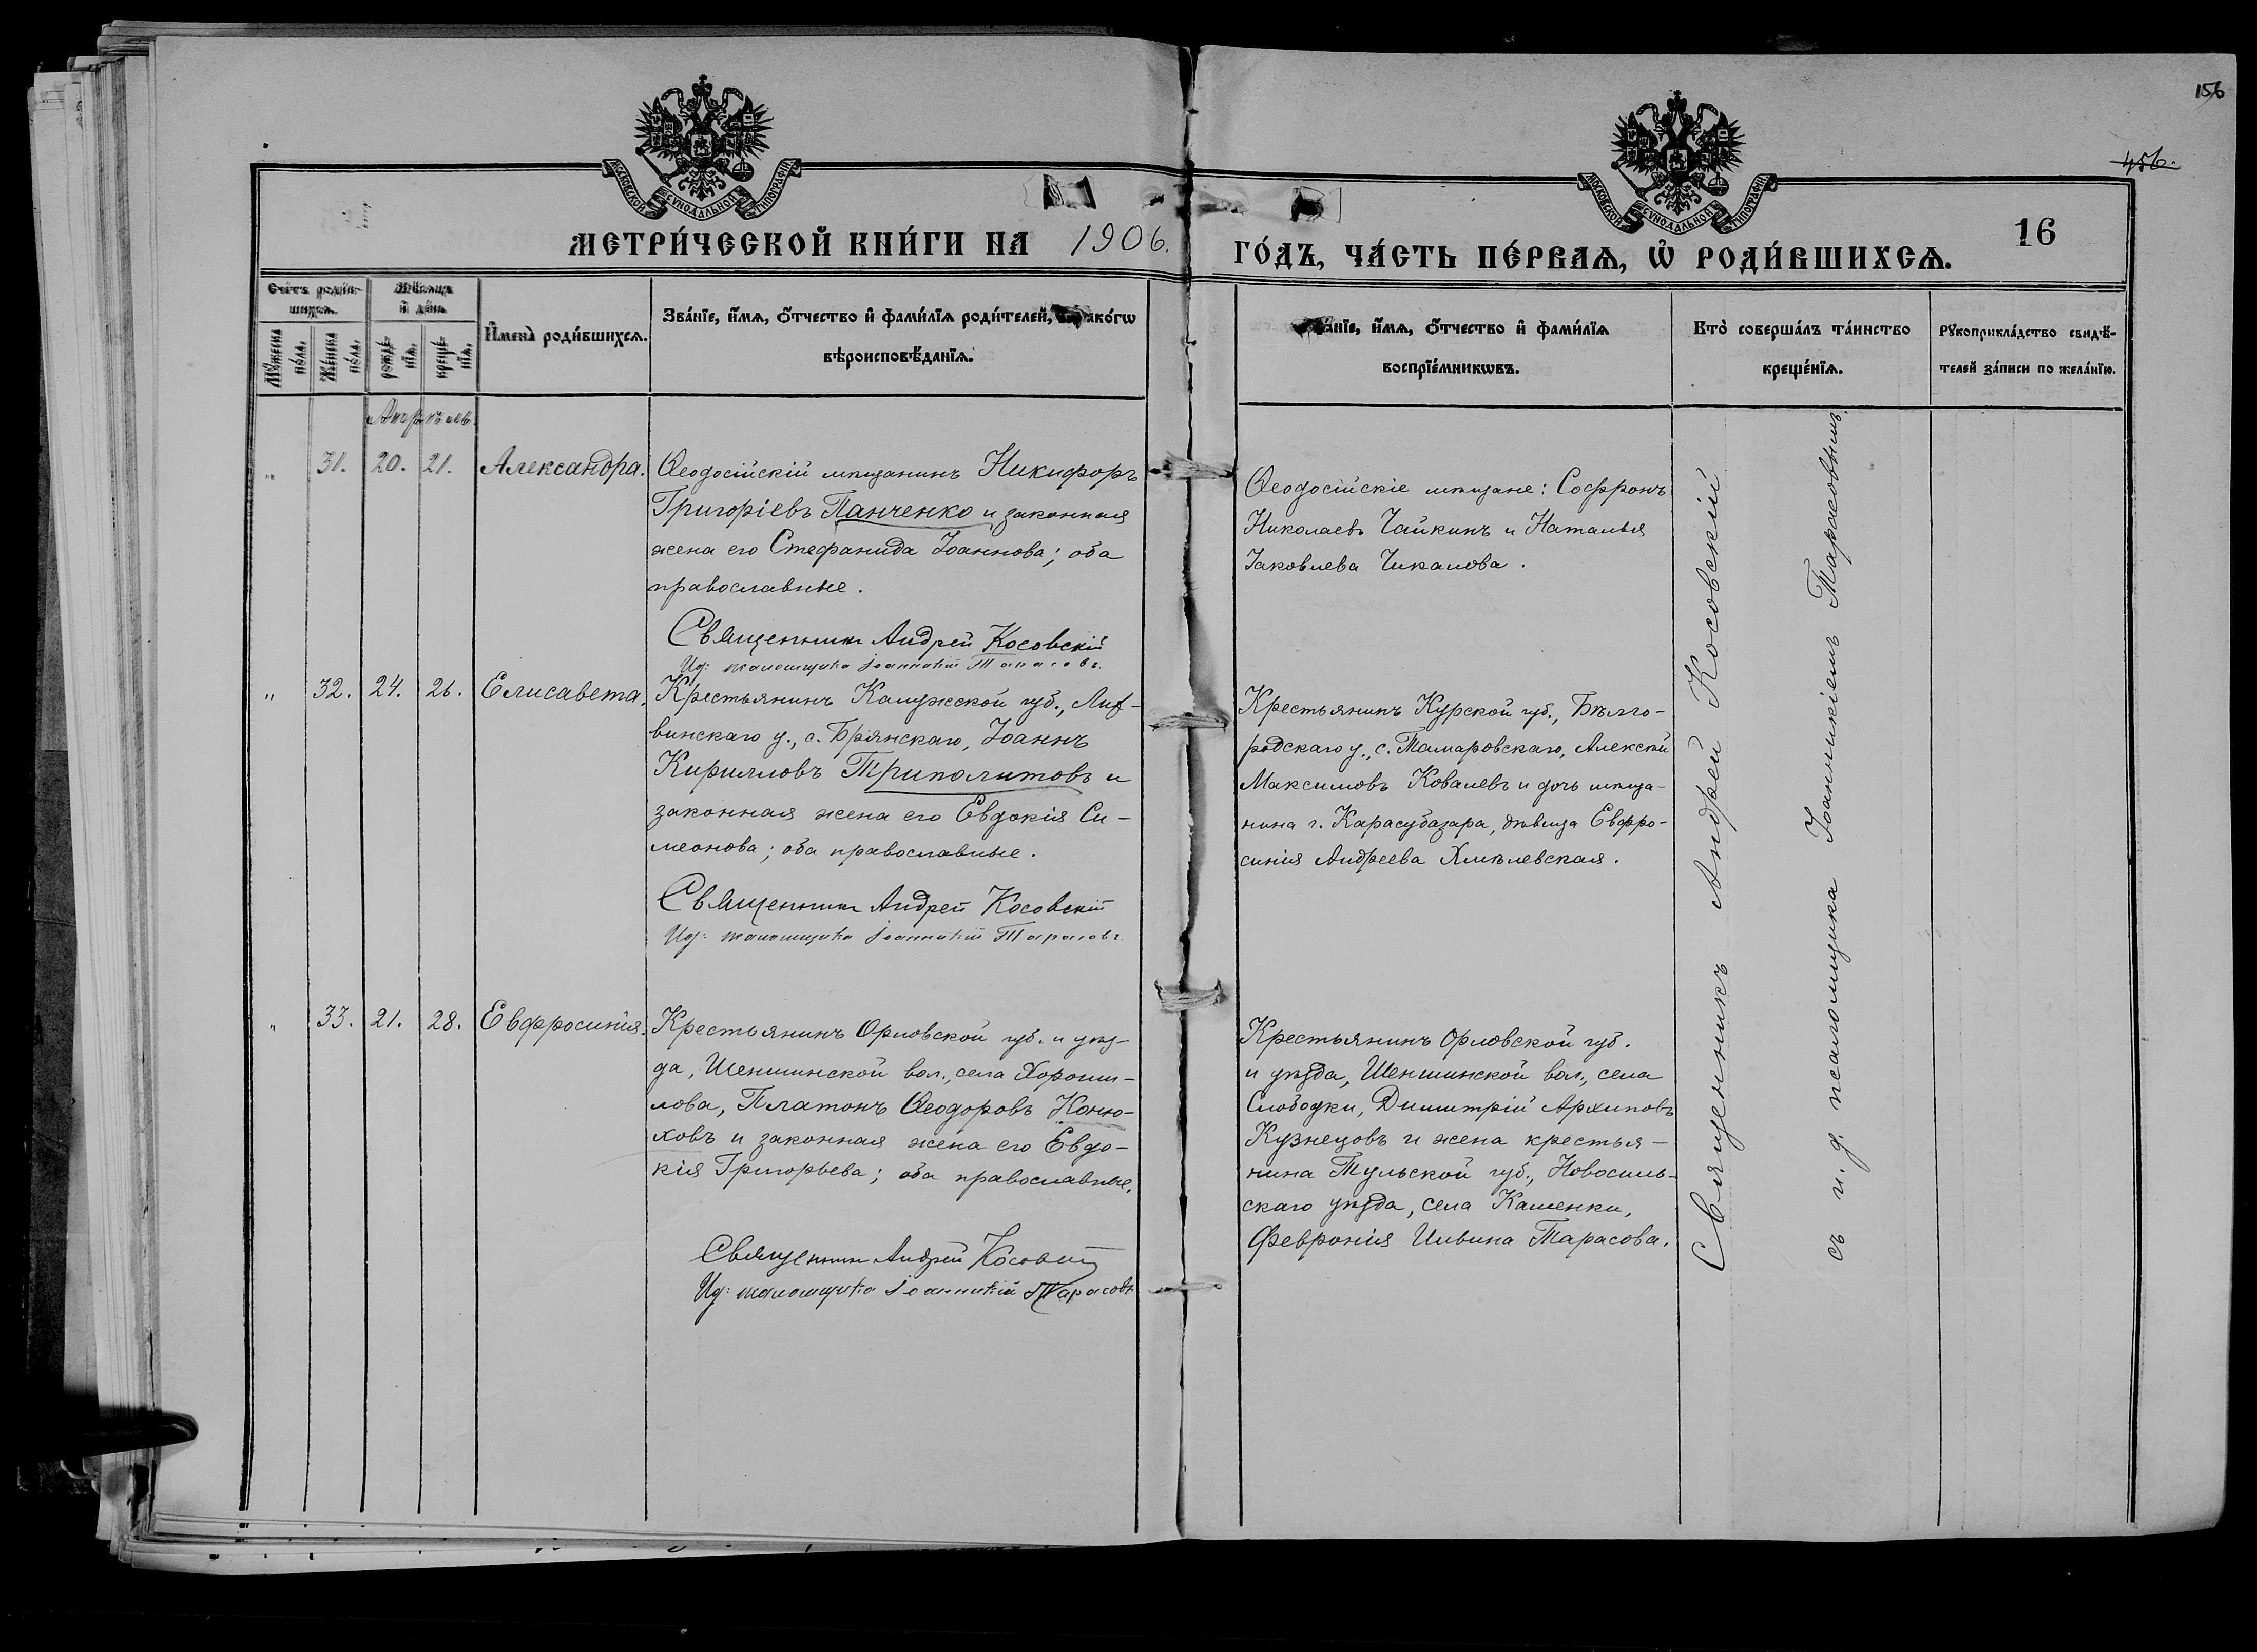 156
456.
МОСКОВСКОЙ СѴНОДАЛЬНОЙ ТИПОГРАФІИ
МОСКОВСКОЙ СѴНОДАЛЬНОЙ ТИПОГРАФІИ
МЕТРИ́ЧЕСКОЙ КНИ́ГИ НА 1906.
ГО́ДЪ, ЧА́СТЬ ПЕ́РВАѦ, Ѡ҆ РОДИ́ВШИХСѦ.
16
Сче́тъ роди́в-
шихсѧ.
Мꙋ́жеска по́ла.
Же́нска по́ла.
Мѣ́сѧцъ
и҆ де́нь
рожде́нїѧ.
креще́нїѧ.
И҆мена̀ роди́вшихсѧ.
Зва́нїе, и҆́мѧ, ѻ҆́тчество и҆ фами́лїѧ роди́телей, и҆ како́гѡ
вѣроисповѣ́данїѧ.
Зва́нїе, и҆́мѧ, ѻ҆́тчество и҆ фами́лїѧ
воспрїе́мникѡвъ.
Кто̀ соверша́лъ та́инство
креще́нїѧ.
Рꙋкоприкла́дство свидѣ́-
телей за́писи по жела́нїю.
Апрѣль.
„ 31. 20. 21. Александра.
Ѳеодосійскій мѣщанинъ Никифоръ
Григоріевъ Панченко и законная
жена его Стефанида Іоаннова; оба
православные.
Священникъ Андрей Косовскій
Ид: псаломщика Іоанникій Тарасовъ
Ѳеодосійскіе мѣщане: Софронъ
Николаевъ Чайкинъ и Наталья
Іаковлева Чикалова.
„ 32. 24. 26. Елисавета.
Крестьянинъ Калужской губ., Лих-
винскаго у., с. Брянскаго, Іоаннъ
Кирилловъ Триполитовъ и
законная жена его Евдокія Си-
меонова; оба православные.
Священникъ Андрей Косовскій
Ид: псаломщика Іоанникій Тарасовъ
Крестьянинъ Курской губ., Бѣлго-
родскаго у., с. Тамаровскаго, Алексѣй
Максимовъ Ковалевъ и дочь мѣща-
нина г. Карасубазара, дѣвица Евфро-
синія Андреева Хмѣлевская.
„ 33. 21. 28. Евфросинія.
Крестьянинъ Орловской губ. и уѣз-
да, Шеншинской вол., села Хороши-
лова, Платонъ Ѳеодоровъ Коню-
ховъ и законная жена его Евдо-
кія Григорьева; оба православные.
Священникъ Андрей Косовскій
Ид: псаломщика Іоанникій Тарасовъ
Крестьянинъ Орловской губ.
и уѣзда, Шеншинской вол., села
Слободки, Димитрій Архиповъ
Кузнецовъ и жена крестья-
нина Тульской губ., Новосиль-
скаго уѣзда, села Каменки,
Февронія Ильина Тарасова.
Священникъ Андрей Косовскій
съ и. д. псаломщика Іоанникіемъ Тарасовымъ.